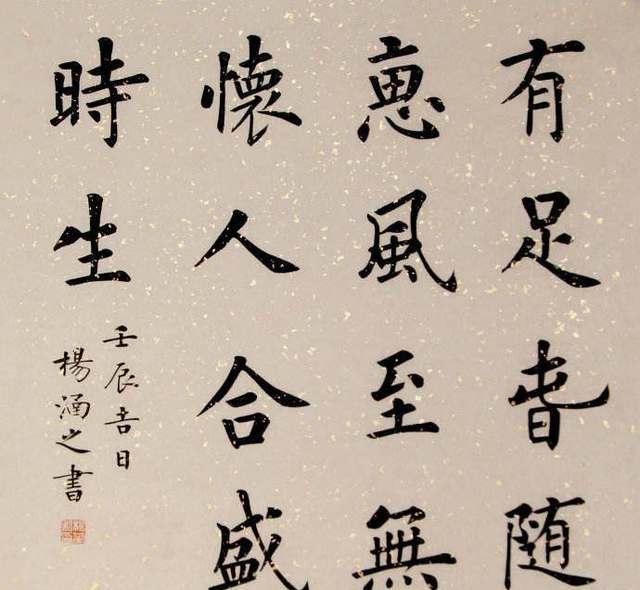 有足旾随
恵風至無
懷人合盛
時生
壬辰吉日
楊涵之書